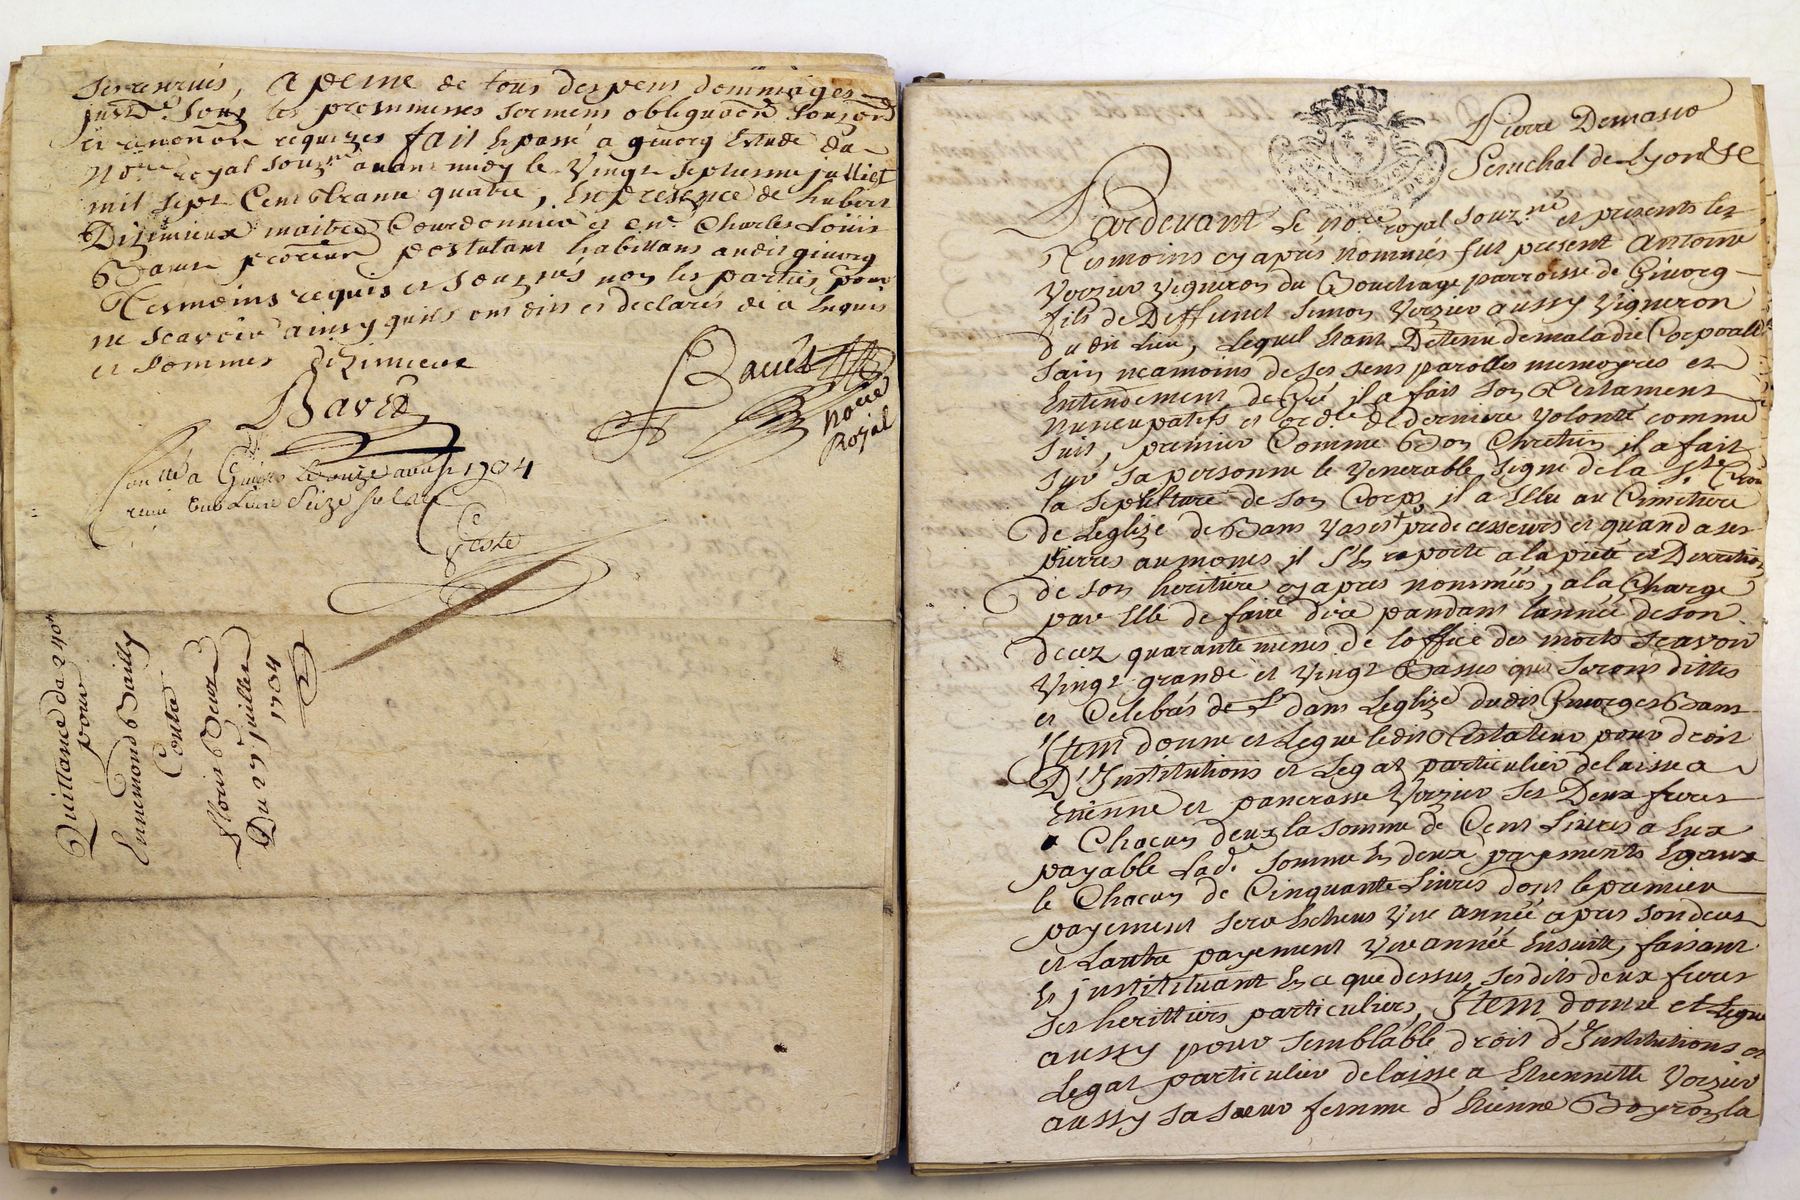 ses renvies, A peine de tous despens dommages
Sous les prommesses serment obligaõn
et renonõn requizes fait et passé a givorg Estude du
Noʳᵉ royal Souzⁿᵉ avant midy le Vingt septiesme julliet
mil sept Cent trante quatre, En presence de hubert
Dizimieux maitre Courdonnier et Charles Louis
Bavet postulant habittans audit givorg
Tesmoins requis et Souznés non les partis pour
ne scavoir ainsy quils ont dit et declarés de a Enquis
et sommes Dizimieux
Bavet
Bavet
Noʳᵉ
Royal
Con lé a Givors Le onze aoust 1734
reçu
Coste
Quittance de 240ᵗᵗ
pour
Ennemond Bailly
Contre
fleurie
Du 27 Juillet
1734
Pierre Demasso
Senechal de Lyon &c
Pardevant Le noʳᵉ royal Souzⁿᵉ et presents les
Tesmoins cy après nommés fut present Antoine
Verzier Vigneron du Bouchage parroisse de Givorg
fils de Deffunct Simon Verzier aussy Vigneron
dudit Lieu, Lequel Etant Detenu de maladie Corporelle
sain neamoins de ses sens parolles memoyres et
Entendement de Gré il a fait son Testament
Nuncupatifs et ordʳᵉ de derniere volonté comme
suit, premier Comme Bon Chretien il a fait
sur sa personne le Venerable signe de la Sᵗᵉ Croix
la sepulture de son Corps il a Elue au Cimetiere
de Leglize de Bans predecesseurs et quand a ses
œuvres aumones il s'En raporte a la pieté et Discretion
de son heritiere cy apres nommées, a la Charge
par Elle de faire dire pandant lannée de son
decez quarante messes de loffice des morts scavoir
Vingt grande et Vingt Basses qui seront dittes
et Celebrés dans Leglize dudit Givorges Bans
Item donne et Legue ledit Testateur pour droit
D'Institutions et Legat particulier delaisse a
Etienne et pancrasse Verzier ses Deux freres
a Chacun deux la somme de Cent Livres a Eux
payable Ladᵉ somme En deux payments Egaux
le Chacun de Cinquante Livres dont le premier
payement sera Echeus Une année apres son deces
et Lautre payement Une année Ensuite, faisant
et justituant En ce que dessus, sesdits deux freres
ses herittiers particuliers, Item donne et Legue
aussy pour semblable droit d'Institutions et
Legat particulier delaisse a Etiennette Verzier
aussy sa sœur femme d'Etienne Boyron la